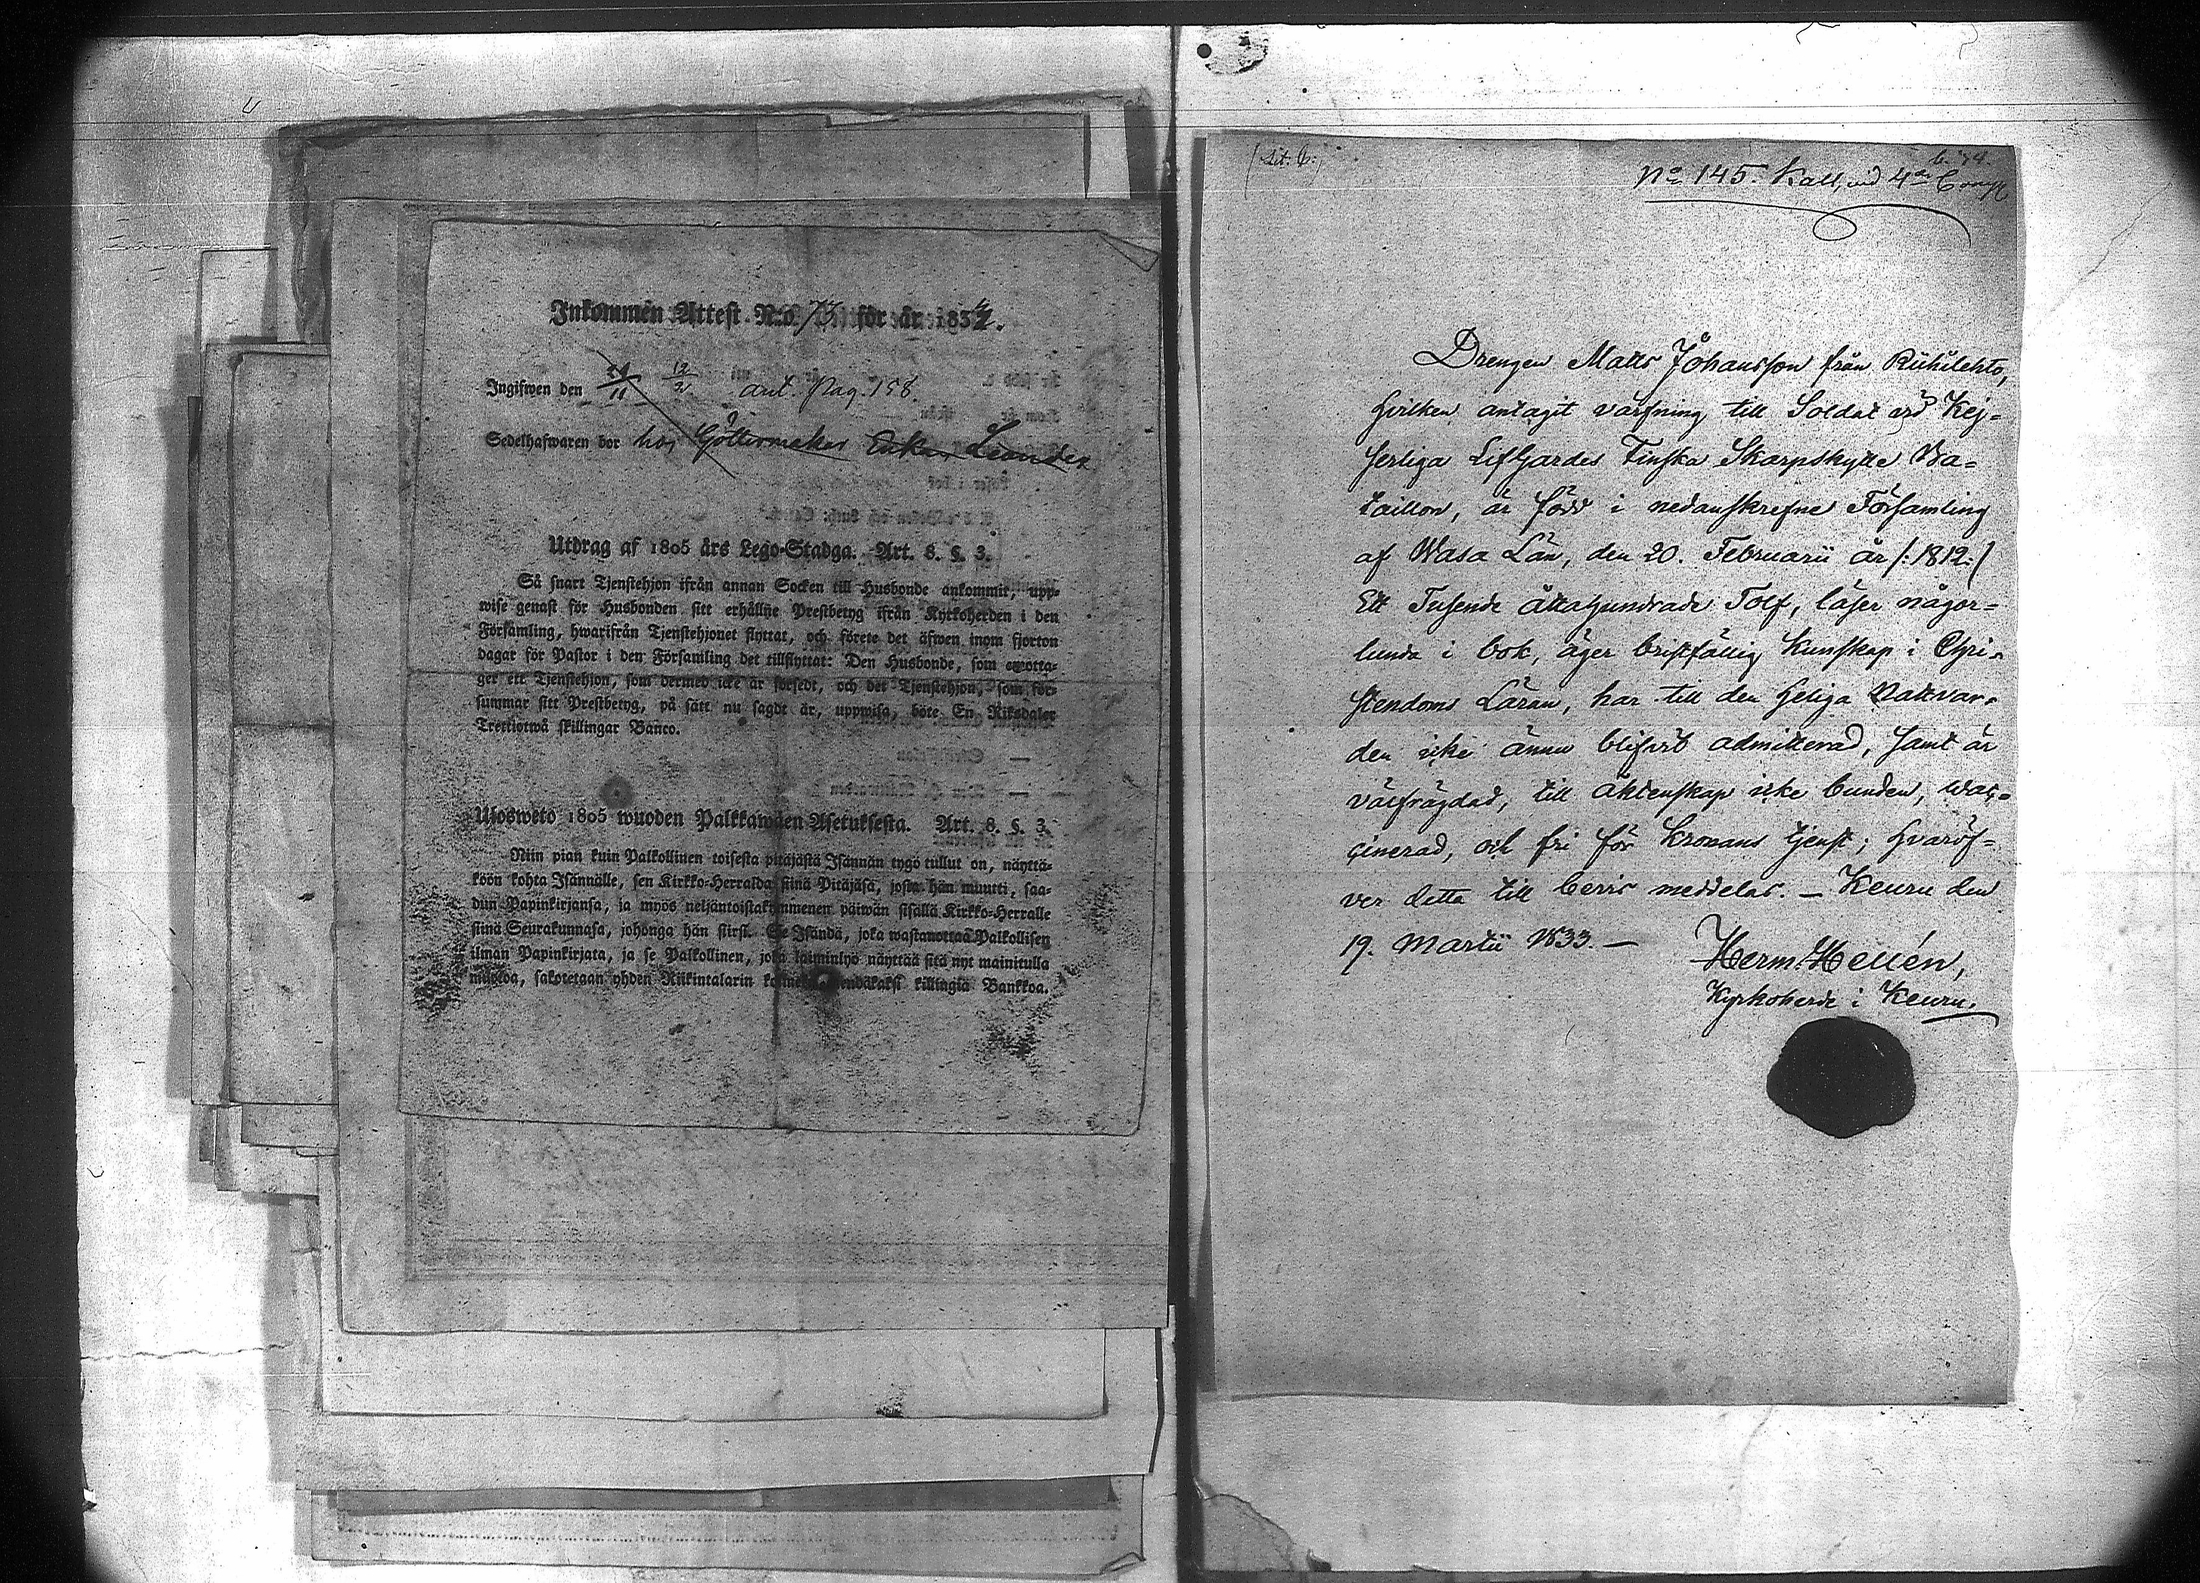 Inkommen Attest N:o 73 för år 1834.
Ingifwen den 12/2 arit. Pag. 158.
Sedelhafwaren bor hos Enkan
Utdrag af 1805 års Lego-Stadga. Art. 8. §. 3.
Så snart Tjenstehjon ifrån annan Socken till Husbonde ankommit, upp-
wise genast för Husbonden sitt erhållne Prestbetyg ifrån Kyrkoherden i den
Församling, hwarifrån Tjenstehjonet flyttat, och förete det äfwen inom fjorton
dagar för Pastor i den Församling det tillflyttat: Den Husbonde, som emotta-
ger ett Tjenstehjon, som dermed icke är försedt, och det Tjenstehjon, som för-
summar sitt Prestbetyg, på sätt nu sagdt är, uppwisa, böte En Riksdaler
Trettiotwå skillingar Banco.
Ulosweto 1805 wuoden Palkkawäen Asetuksesta. Art. 8. §. 3.
Niin pian kuin Palkollinen toisesta pitäjästä Isännän tygö tullut on, näyttä-
köön kohta Isännälle, sen Kirkko-Herralda siinä Pitäjäsä, josta hän muutti, saa-
dun Papinkirjansa, ja myös neljäntoistakymmenen päiwän sisällä Kirkko-Herralle
siinä Seurakunnasa, johonga hän siirsi. Se Isändä, joka wastanottaa Palkollisen
ilman Papinkirjata, ja se Palkollinen, joka laiminlyö näyttää sitä nyt mainitulla
muotoa, sakotetaan yhden Riikintalarin kolmekymmendäkaksi killingiä Bankkoa.
(Lit. C:)
No 145. Kall, vid 4de Comp
Drengen Matts Johansson från Riihilehto,
hvilken antagit värfning till Soldat vid Kej-
serliga LifGardes Finska Skarpskytte Ba-
taillon, är född i nedanskrefne Församling
af Wasa Län, den 20. Februarii år /: 1812:/
Ett Tusende Åttahundrade Tolf, läser någor-
lunda i bok, äger bristfällig Kunskap i Chri-
stendoms Läran, har till den heliga Nattvar-
den icke ännu blifvit admitterad, samt är
välfrägdad, till äktenskap icke bunden, vac-
cinerad, och fri för Kronans tjenst; hvaröf-
ver detta till bevis meddelas. – Keuru den
19. Martii 1833. –
Herm: Hellén,
Kyrkoherde i Keuru.